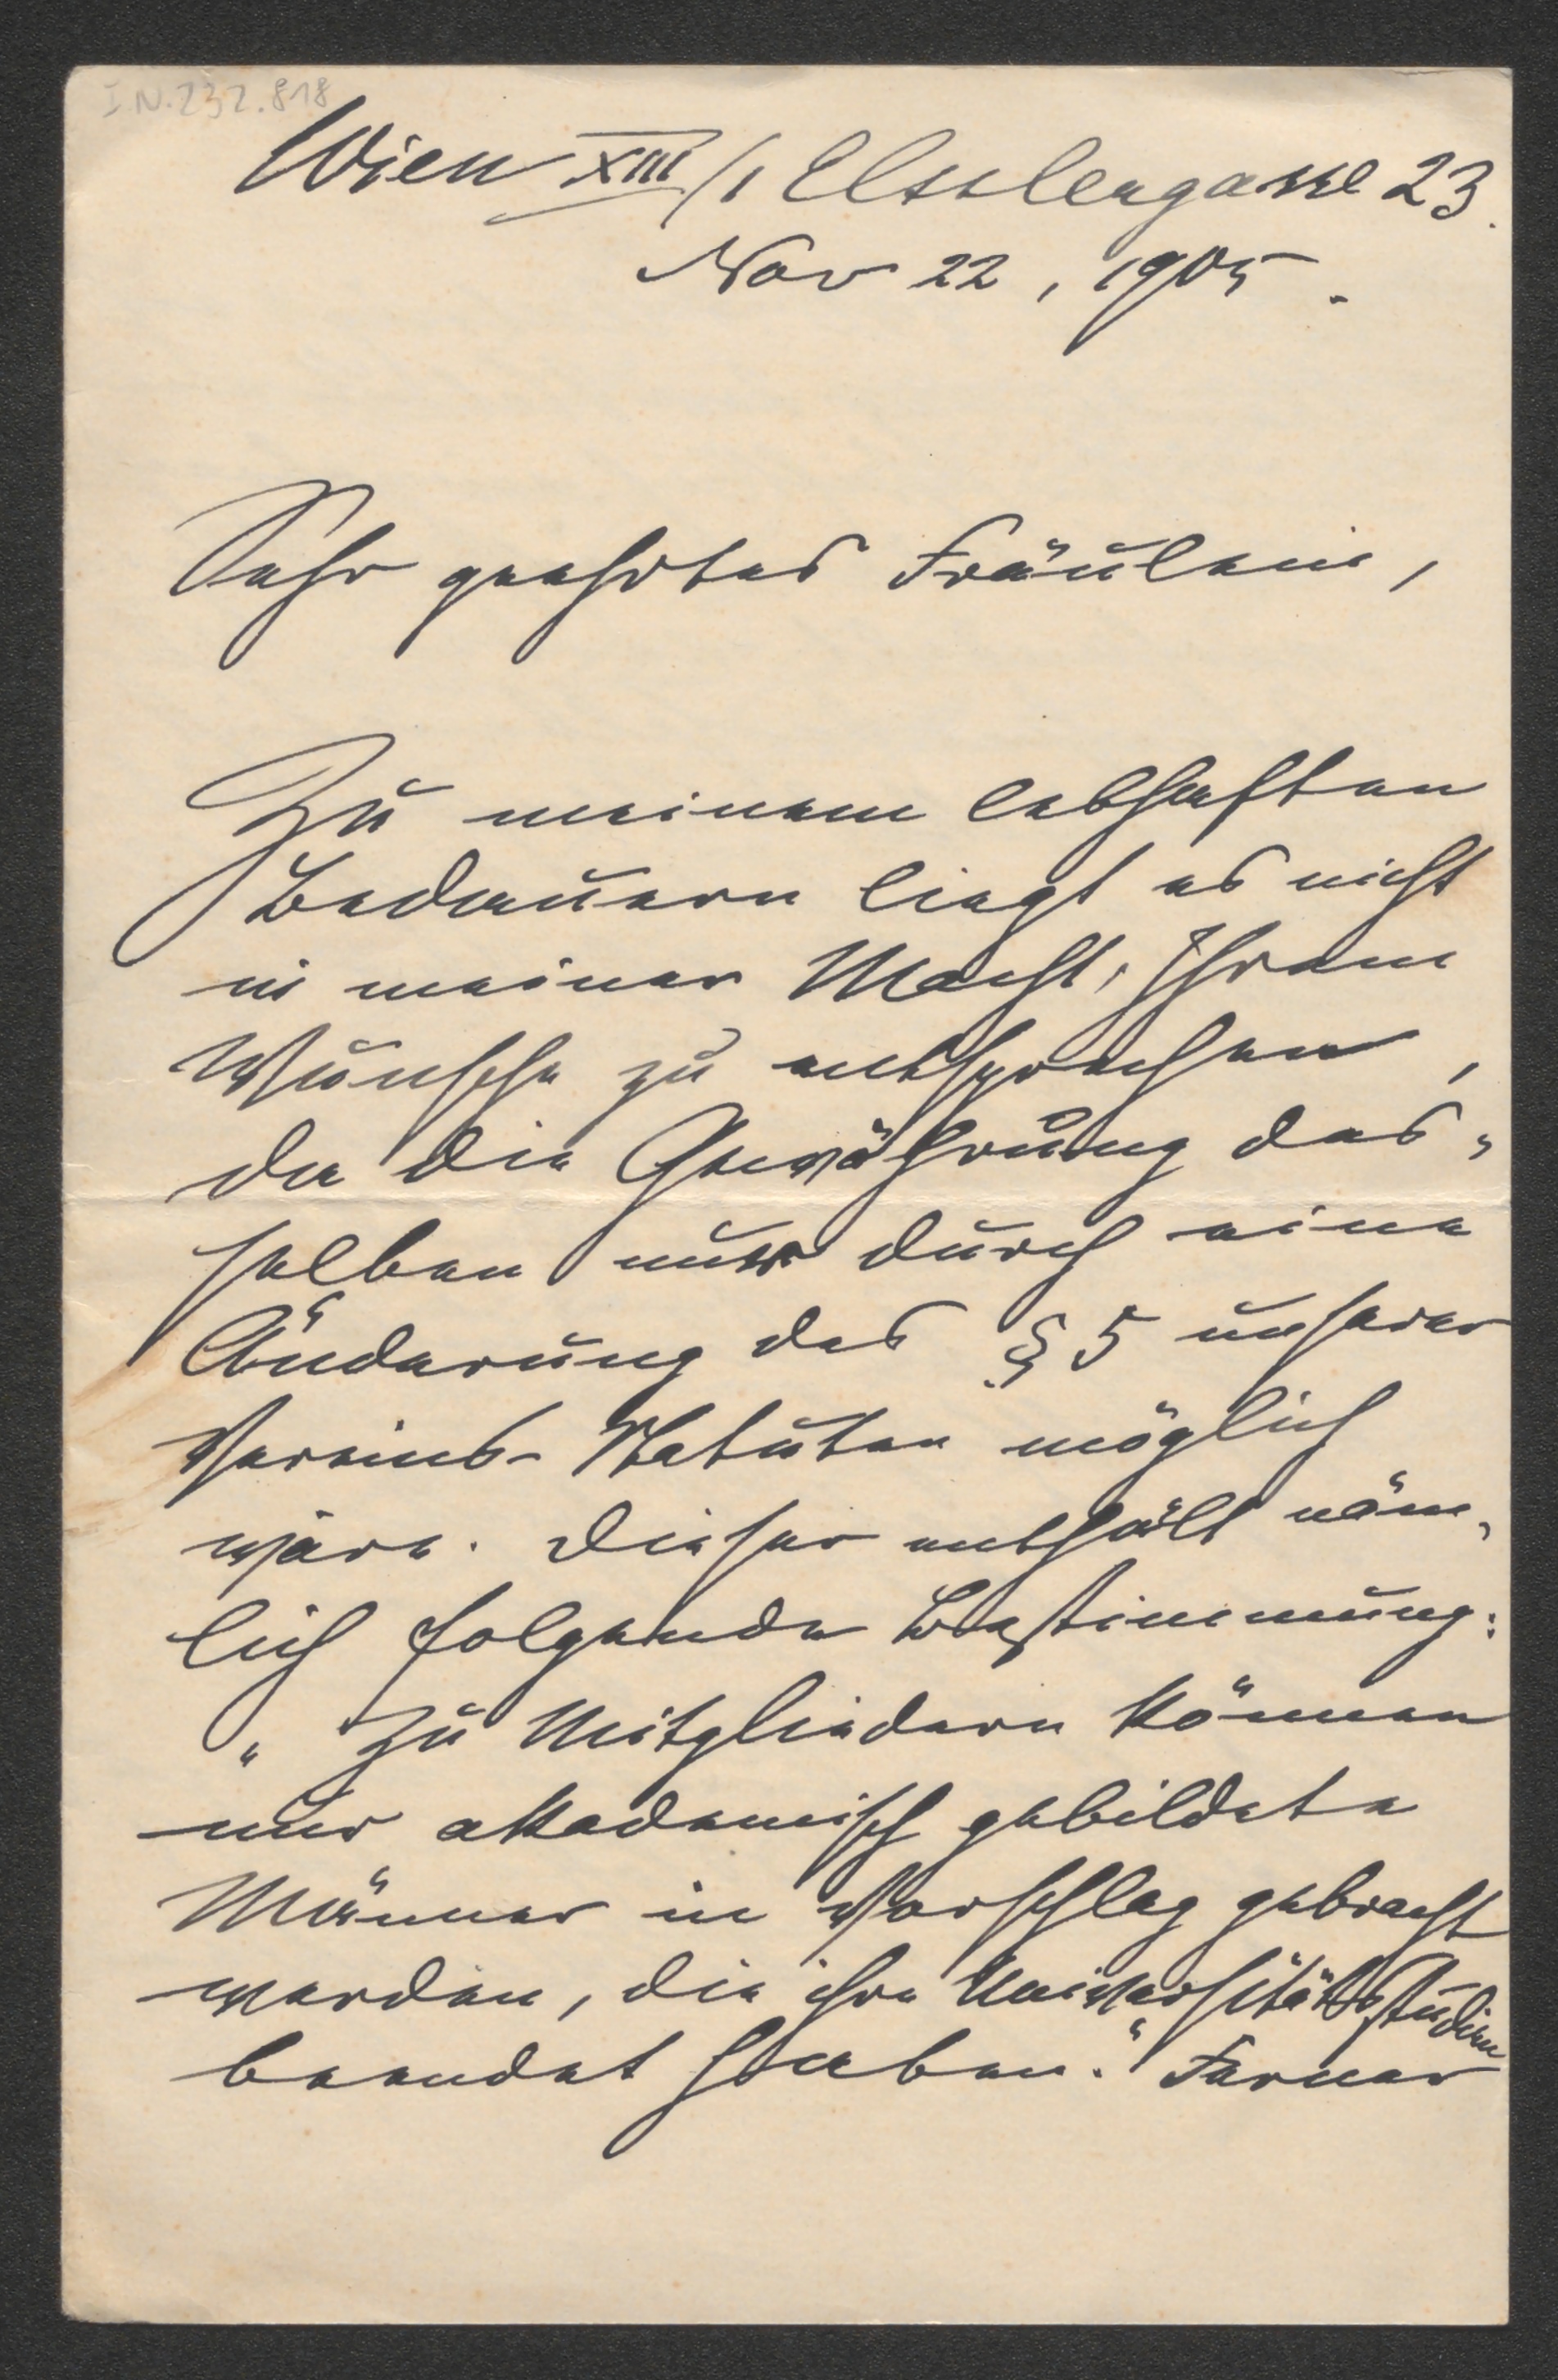 I.N. 232.818
Wien XIII/1 Elsslergasse 23.
Nov 22, 1905.
Sehr geehrtes Fräulein,
Zu meinem lebhaften
Bedauern liegt es nicht
in meiner Macht, Ihrem
Wunsche zu entsprechen,
da die Gewährung des-
selben nur durch eine
Änderung des § 5 unserer
Vereins-Statuten möglich
wäre. Dieser enthält näm-
lich folgende Bestimmung:
„Zu Mitgliedern können
nur akademisch gebildete
Männer in Vorschlag gebracht
werden, die ihre Universitätsstudien
beendet haben.“ Ferner